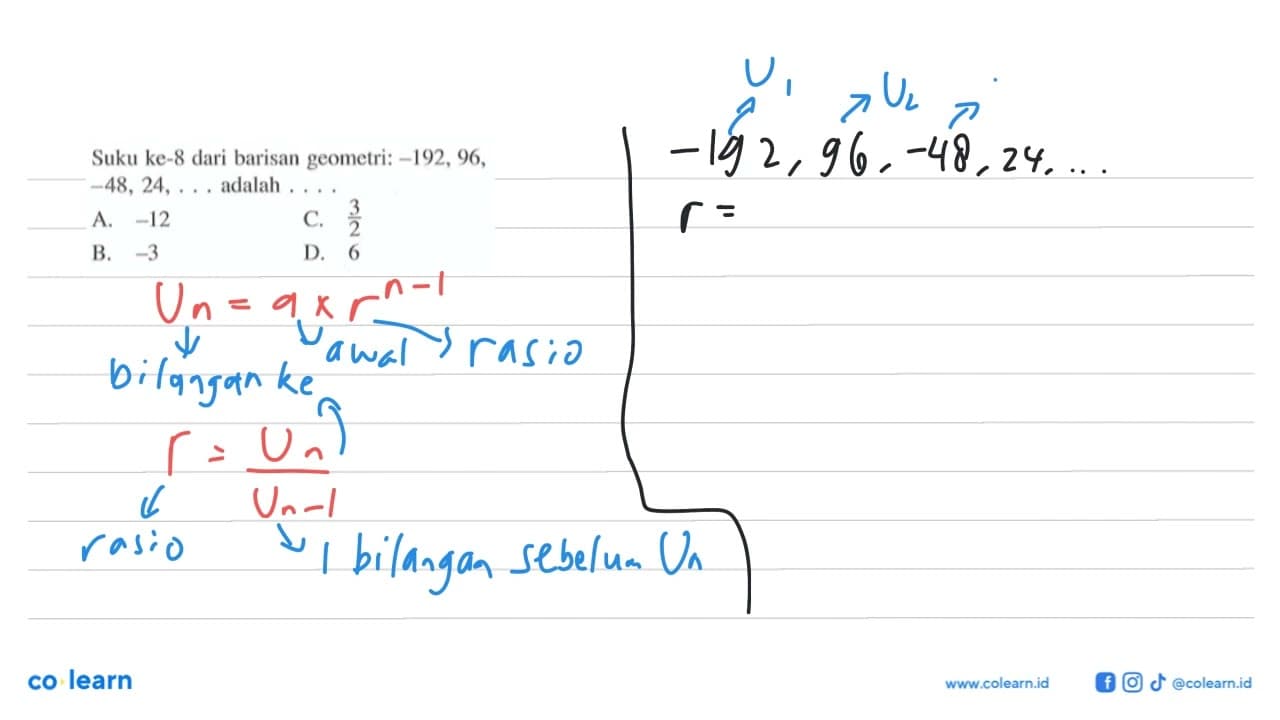 Suku ke-8 dari barisan geometri: –192, 96,
–48, 24, . . . adalah . . . .
A. –12 C. 3/2
B. –3 D. 6
Un = a × r^n-1
awal rasio
bilangan ke
r = Un/Un-1
rasio 1 bilangan sebelum Un
U1 U2
-192, 96, -48, 24, ...
r =
co learn
www.colearn.id @colearn.id